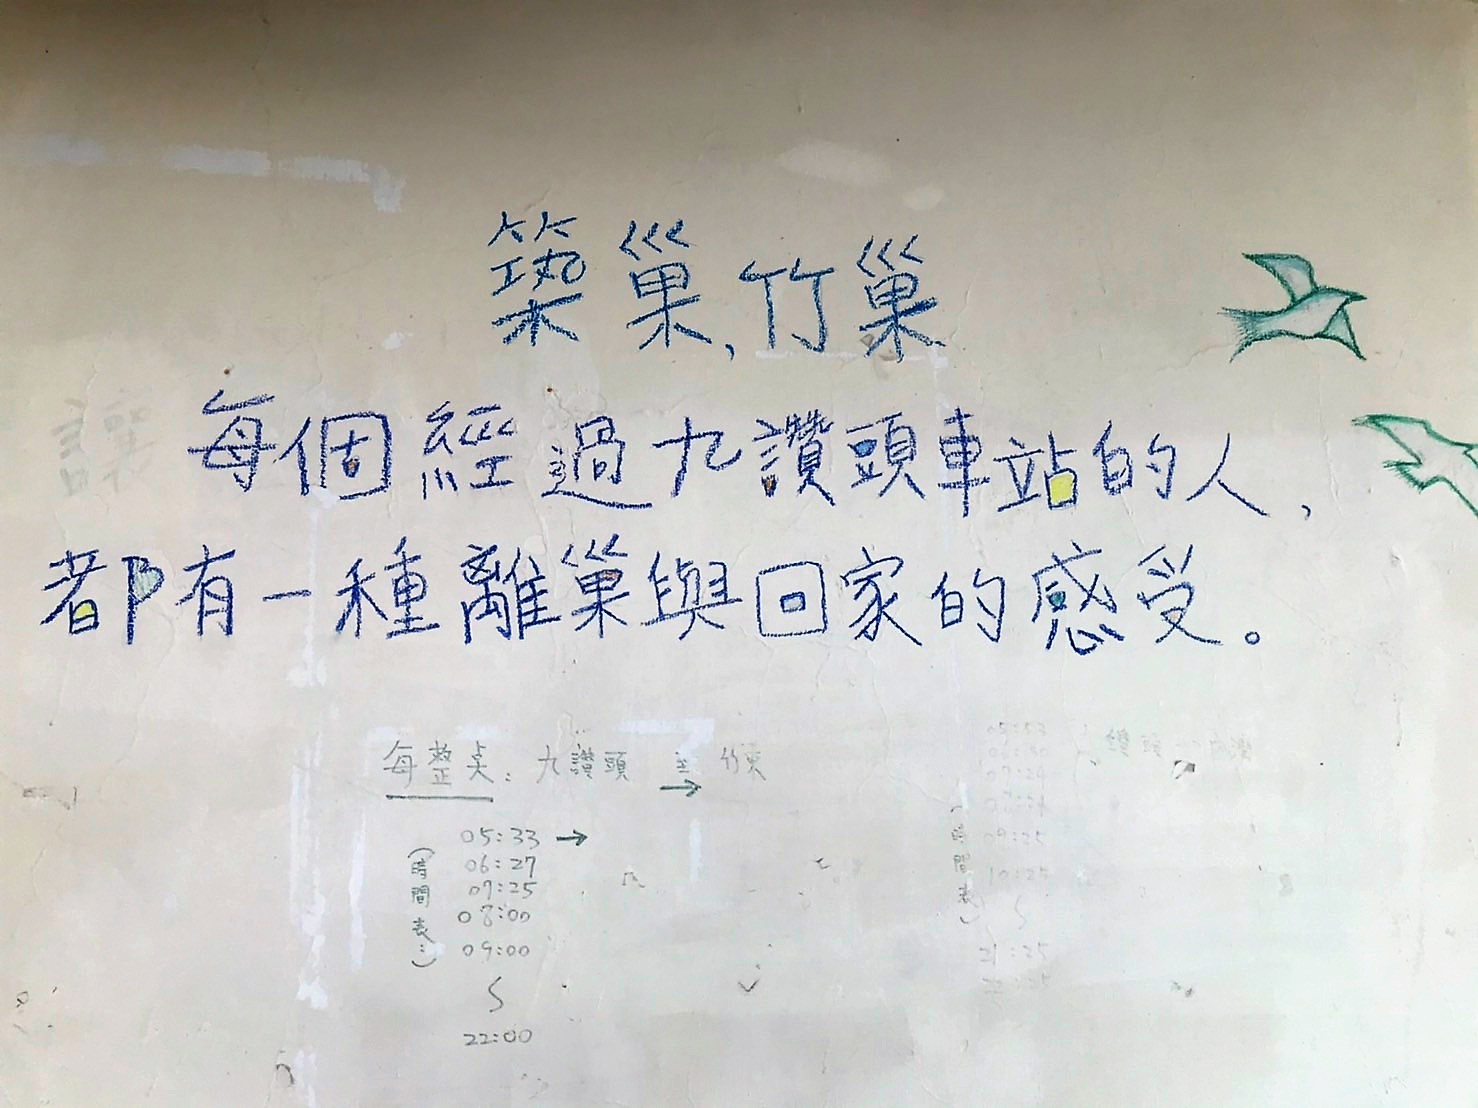 築巢,竹巢
每個經過九讚頭車站的人,
都有一種離巢與回家的感受。
每整点: 九讚頭 → 竹東
(時間表:)
05:33 →
06:27
07:25
08:00
09:00
22:00
讚頭
09:25
10:25
21:25